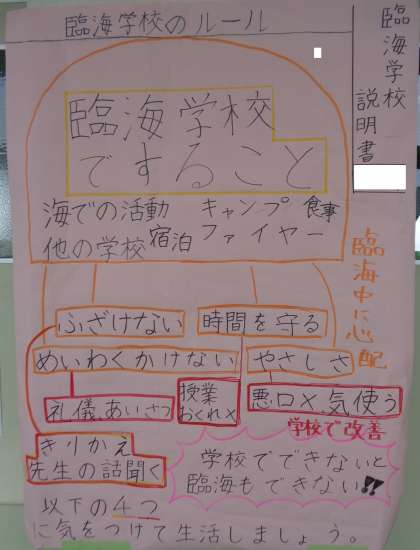 臨海学校のルール
臨海学校
説明書
臨海学校
ですること
海での活動
キャンプ
ファイヤー
食事
他の学校
宿泊
臨海中に心配
ふざけない
時間を守る
めいわくかけない
やさしさ
礼儀、あいさつ
授業
おくれ×
悪口×気使う
学校で改善
きりかえ
先生の話聞く
学校でできないと
臨海もできない!!
以下の4つ
に気をつけて生活しましょう。